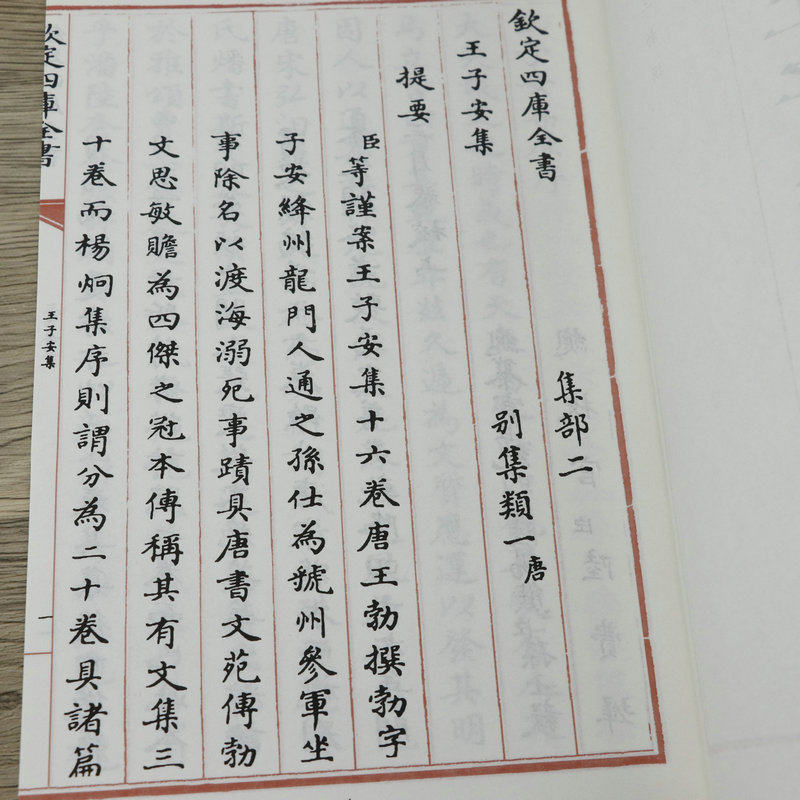 欽定四庫全書 集部二
王子安集 別集類一唐
提要
臣等謹案王子安集十六卷唐王勃撰勃字
子安絳州龍門人通之孫仕為虢州參軍坐
事除名以渡海溺死事蹟具唐書文苑傳勃
文思敏贍為四傑之冠本傳稱其有文集三
十卷而楊炯集序則謂分為二十卷具諸篇
欽定四庫全書
王子安集
一